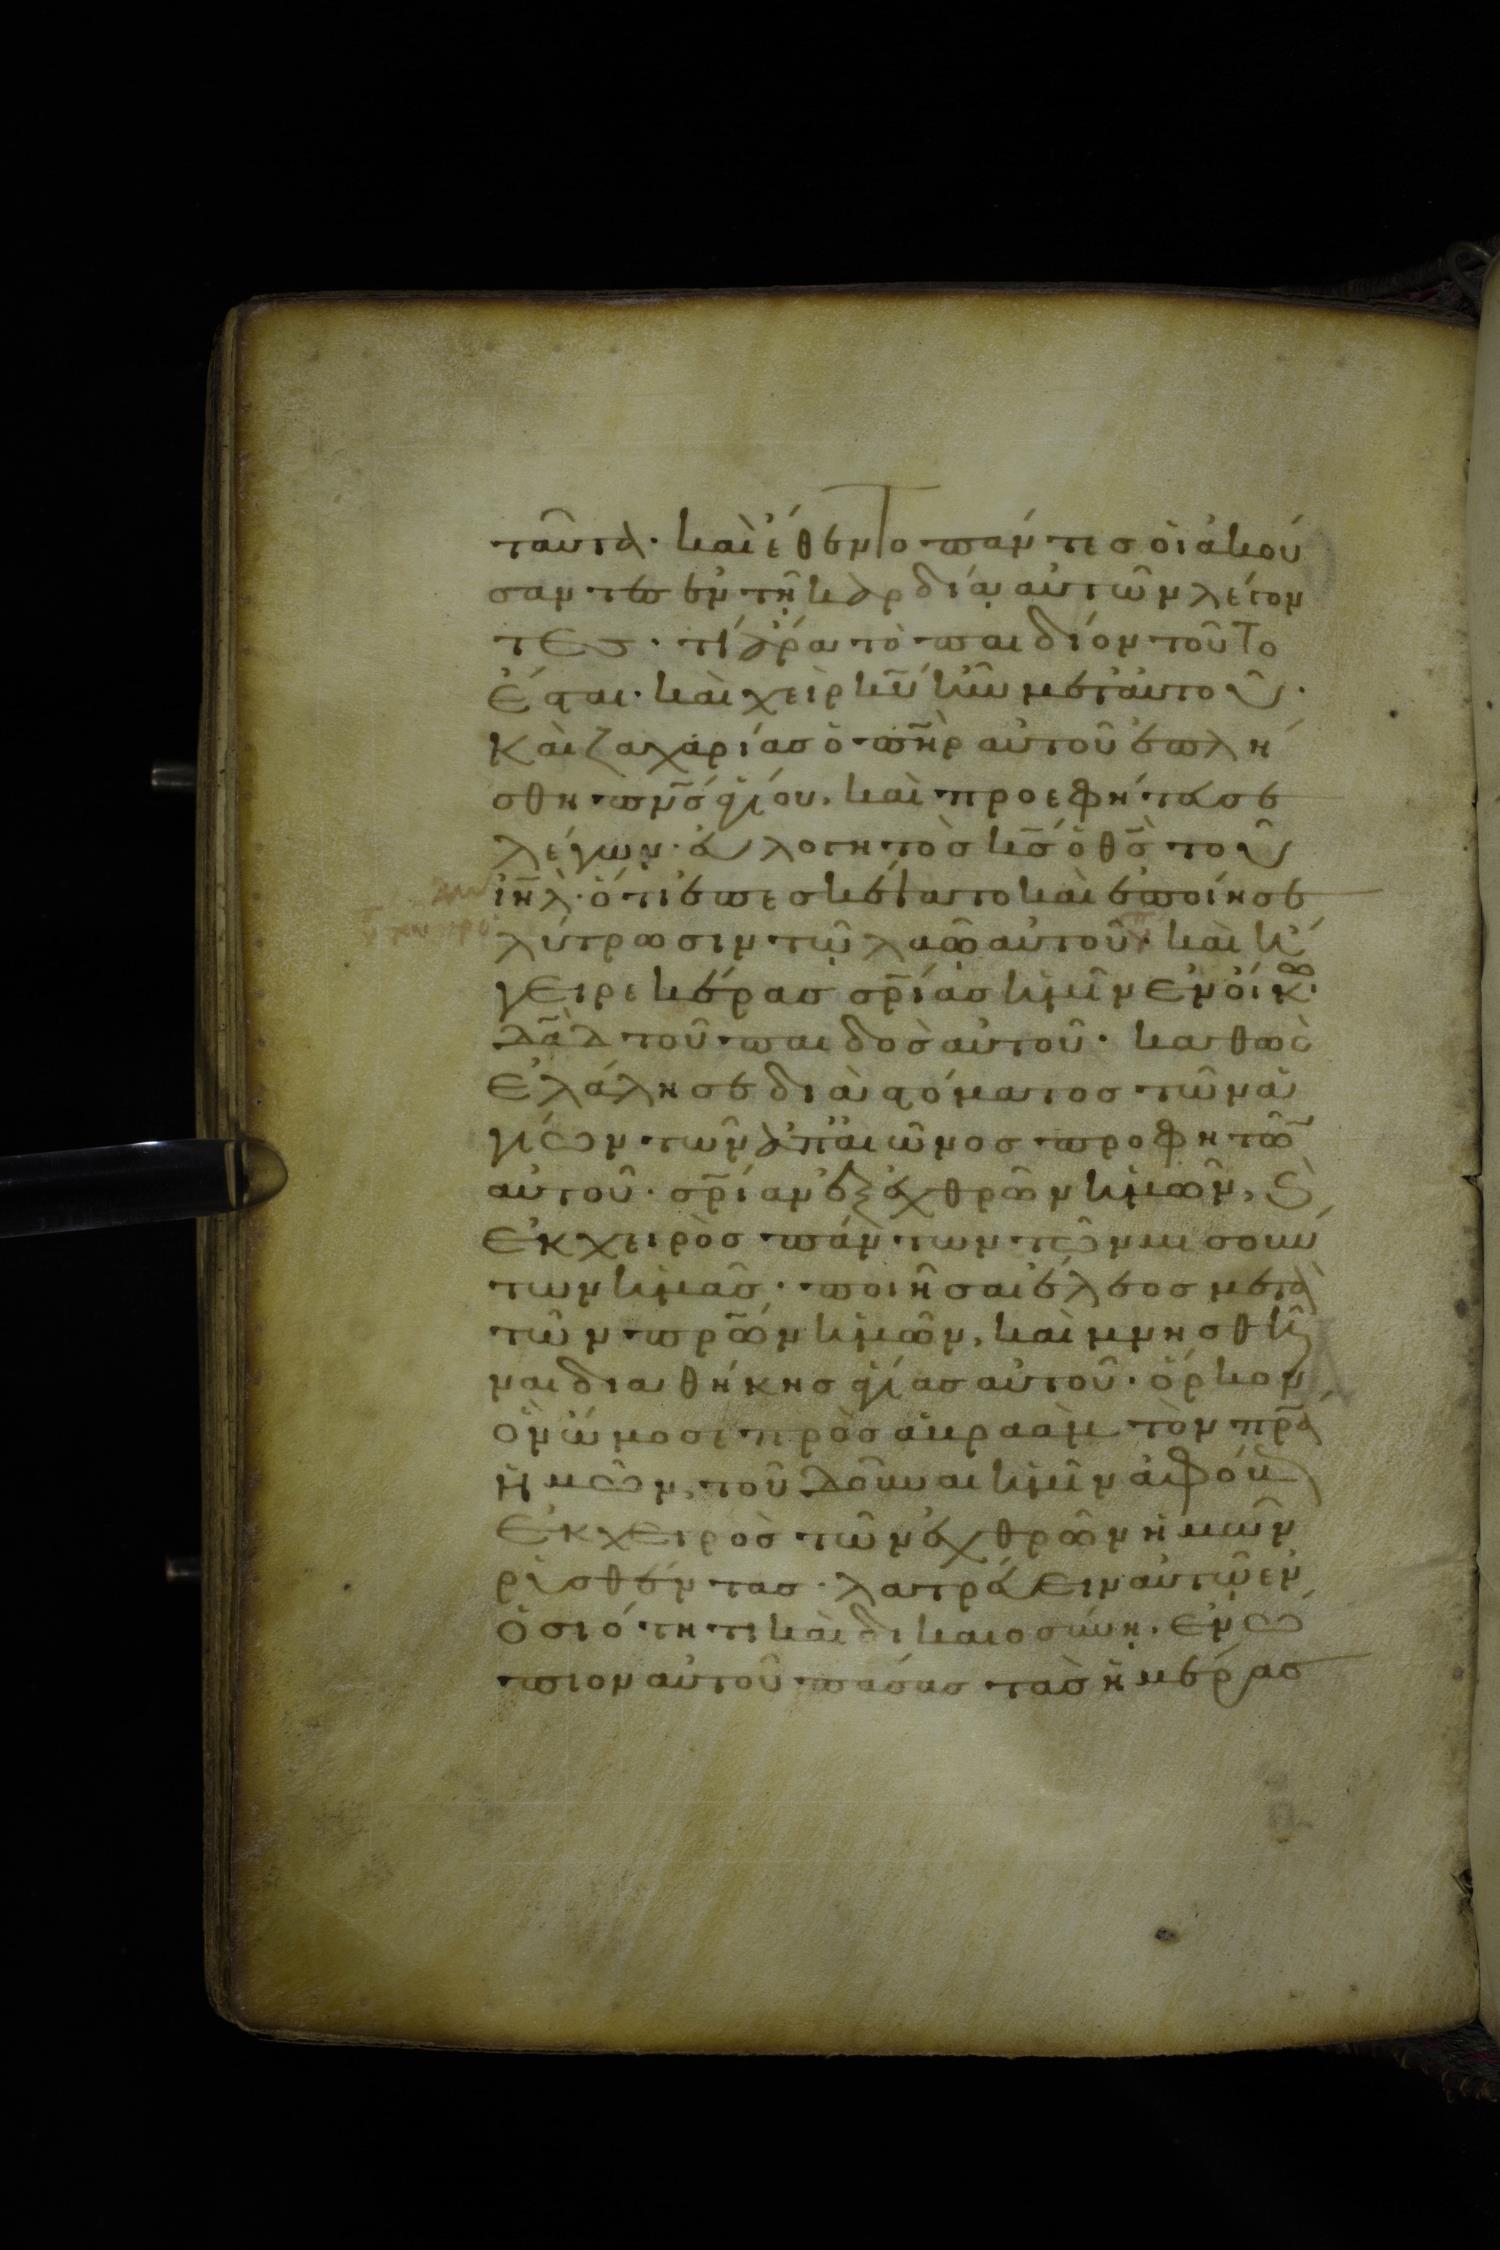 ταῦτα· καὶ ἔθεντο πάντες οἱ ἀκού
σαντες ἐν τῇ καρδίᾳ αὐτῶν λέγον
τες· τί ἄρα τὸ παιδίον τοῦτο
ἔσται· καὶ χεὶρ κυ ἦν μετ αὐτοῦ·
Καὶ ζαχαρίας ὁ πηρ αὐτοῦ ἐπλή
σθη πνς ἁγίου, καὶ προεφήτευσε
λέγων· εὐλογητὸς κς ὁ θς τοῦ
ιηλ· ὅτι ἐπεσκέψατο καὶ ἐποίησε
λύτρωσιν τῷ λαῷ αὐτοῦ· καὶ ἤ
γειρε κέρας σρίας ἡμῖν ἐν οἴκῳ
δαδ τοῦ παιδὸς αὐτοῦ· καθὼς
ἐλάλησε διὰ στόματος τῶν ἁ
γίων τῶν ἀπ αἰῶνος προφητῶν
αὐτοῦ· σρίαν ἐξ ἐχθρῶν ἡμῶν, καὶ
ἐκ χειρὸς πάντων τῶν μισούν
των ἡμᾶς· ποιῆσαι ἔλεος μετὰ
τῶν πρων ἡμῶν, καὶ μνησθῆ
ναι διαθήκης ἁγίας αὐτοῦ· ὅρκον
ὃν ὤμοσε πρὸς ἀβραὰμ τὸν πρα
ἡμῶν, τοῦ δοῦναι ἡμῖν ἀφόβως
ἐκ χειρὸς τῶν ἐχθρῶν ἡμῶν
ῥυσθέντας· λατρεύειν αὐτῷ ἐν
ὁσιότητι καὶ δικαιοσύνῃ· ἐνώ
πιον αὐτοῦ πάσας τὰς ἡμέρας